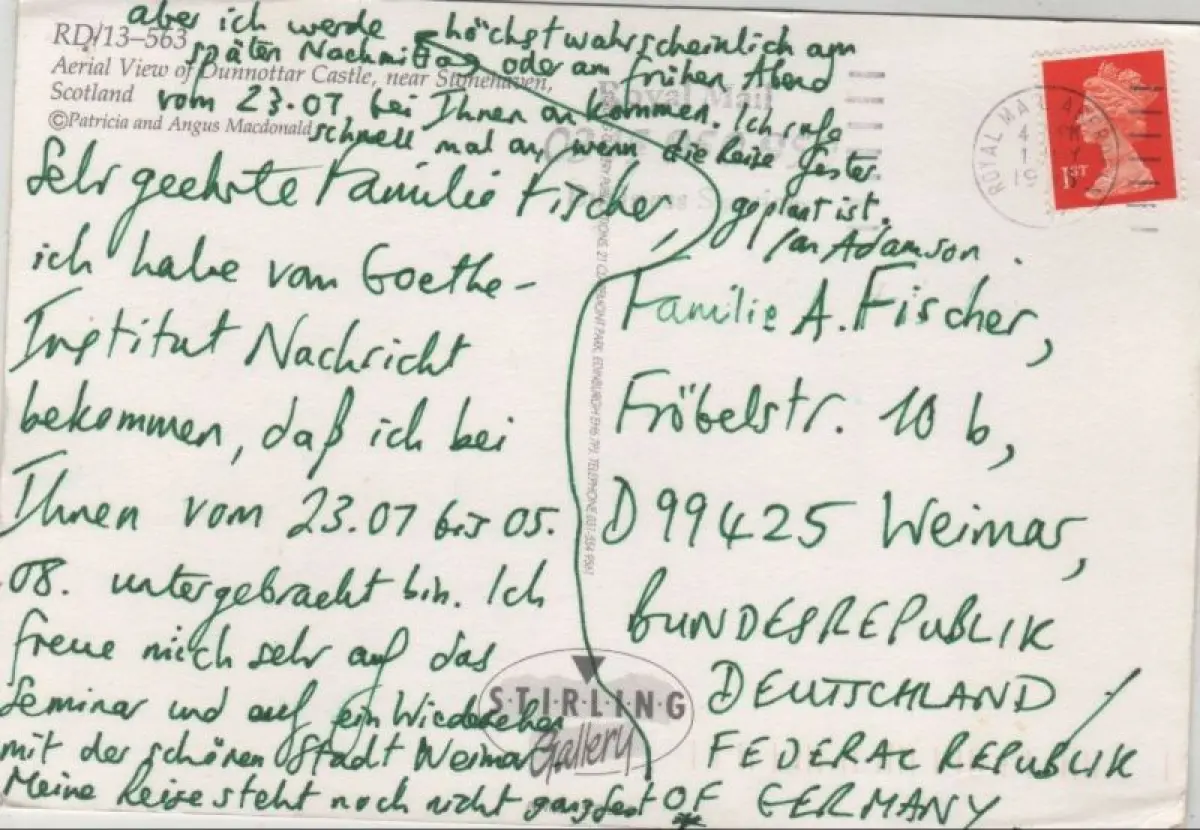 RD/13-563
Aerial View of Dunnottar Castle, near Stonehaven,
Scotland
©Patricia and Angus Macdonald
Sehr geehrte Familie Fischer,
ich habe vom Goethe-
Institut Nachricht
bekommen, daß ich bei
Ihnen vom 23.07 bis 05.
08. untergebracht bin. Ich
freue mich sehr auf das
Seminar und auf ein Wiedersehen
mit der schönen Stadt Weimar.
Meine Reise steht noch nicht ganz fest
aber ich werde höchstwahrscheinlich am
späten Nachmittag oder am frühen Abend
vom 23.07 bei Ihnen ankommen. Ich rufe
schnell mal an, wenn die Reise fester
geplant ist.
Ian Adamson.
Familie A. Fischer,
Fröbelstr. 10 b,
D 99425 Weimar,
BUNDESREPUBLIK
DEUTSCHLAND /
FEDERAL REPUBLIK
OF GERMANY
STIRLING
Gallery
Royal Mail
ROYAL MAIL
1ST
21 CLAREMONT PARK, EDINBURGH EH6 7PJ, TELEPHONE 031-554 9561